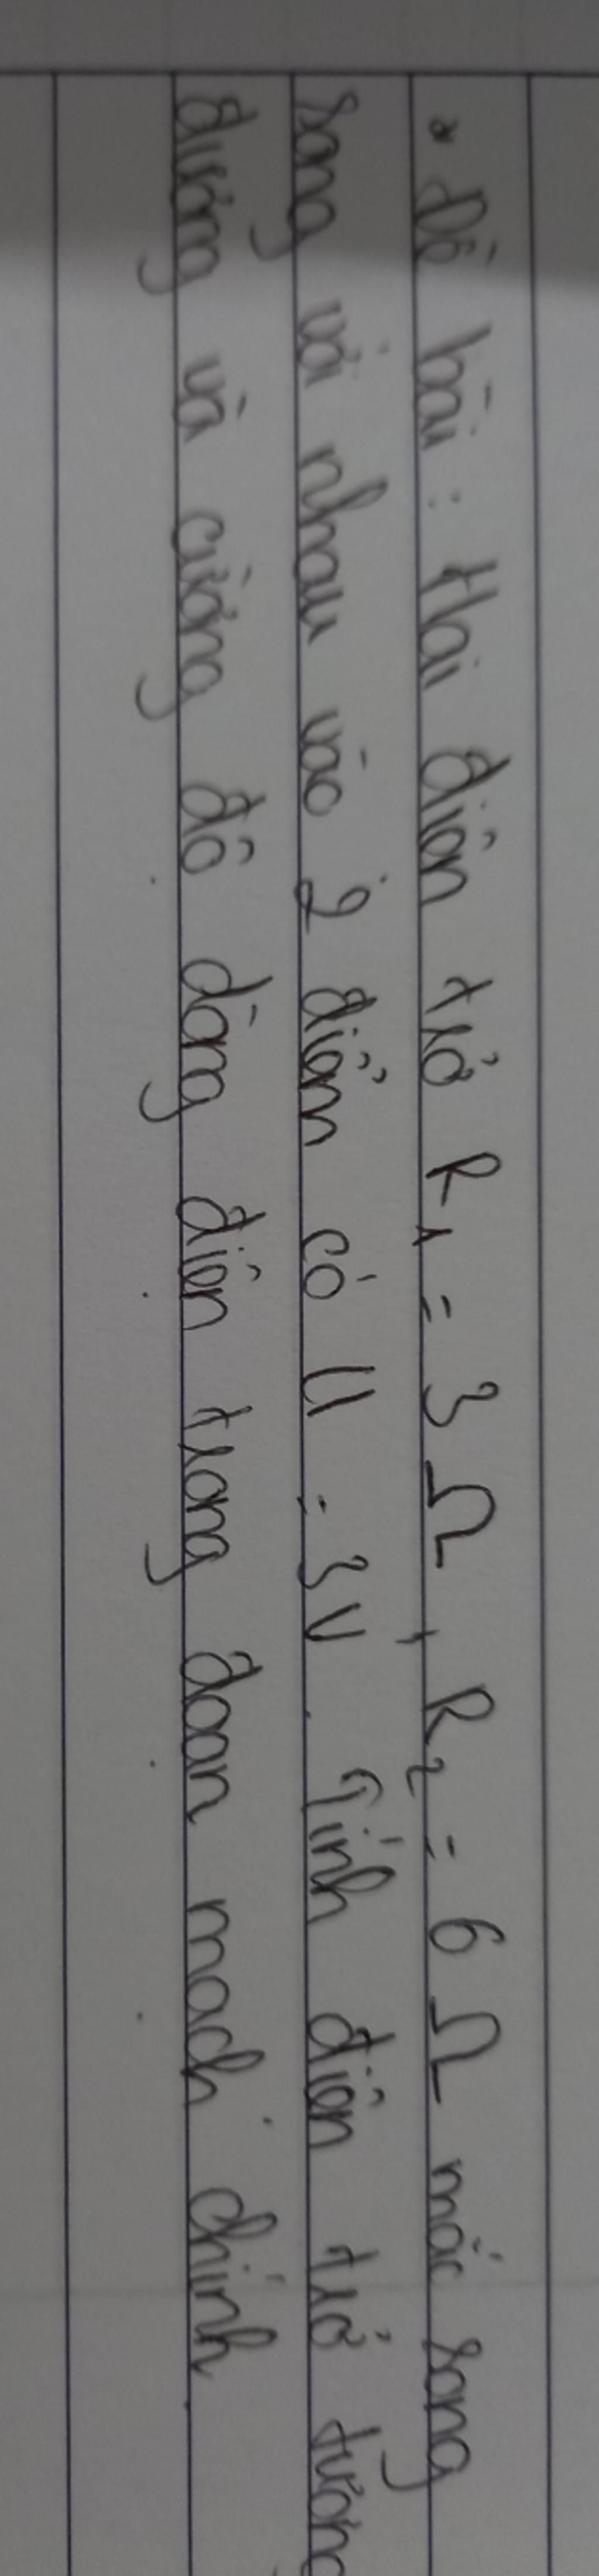 * Đề bài : Hai điện trở R₁ = 3 Ω , R₂ = 6 Ω mắc song
song với nhau vào 2 điểm có U = 3V . Tính điện trở tương
đương và cường độ dòng điện trong đoạn mạch chính .